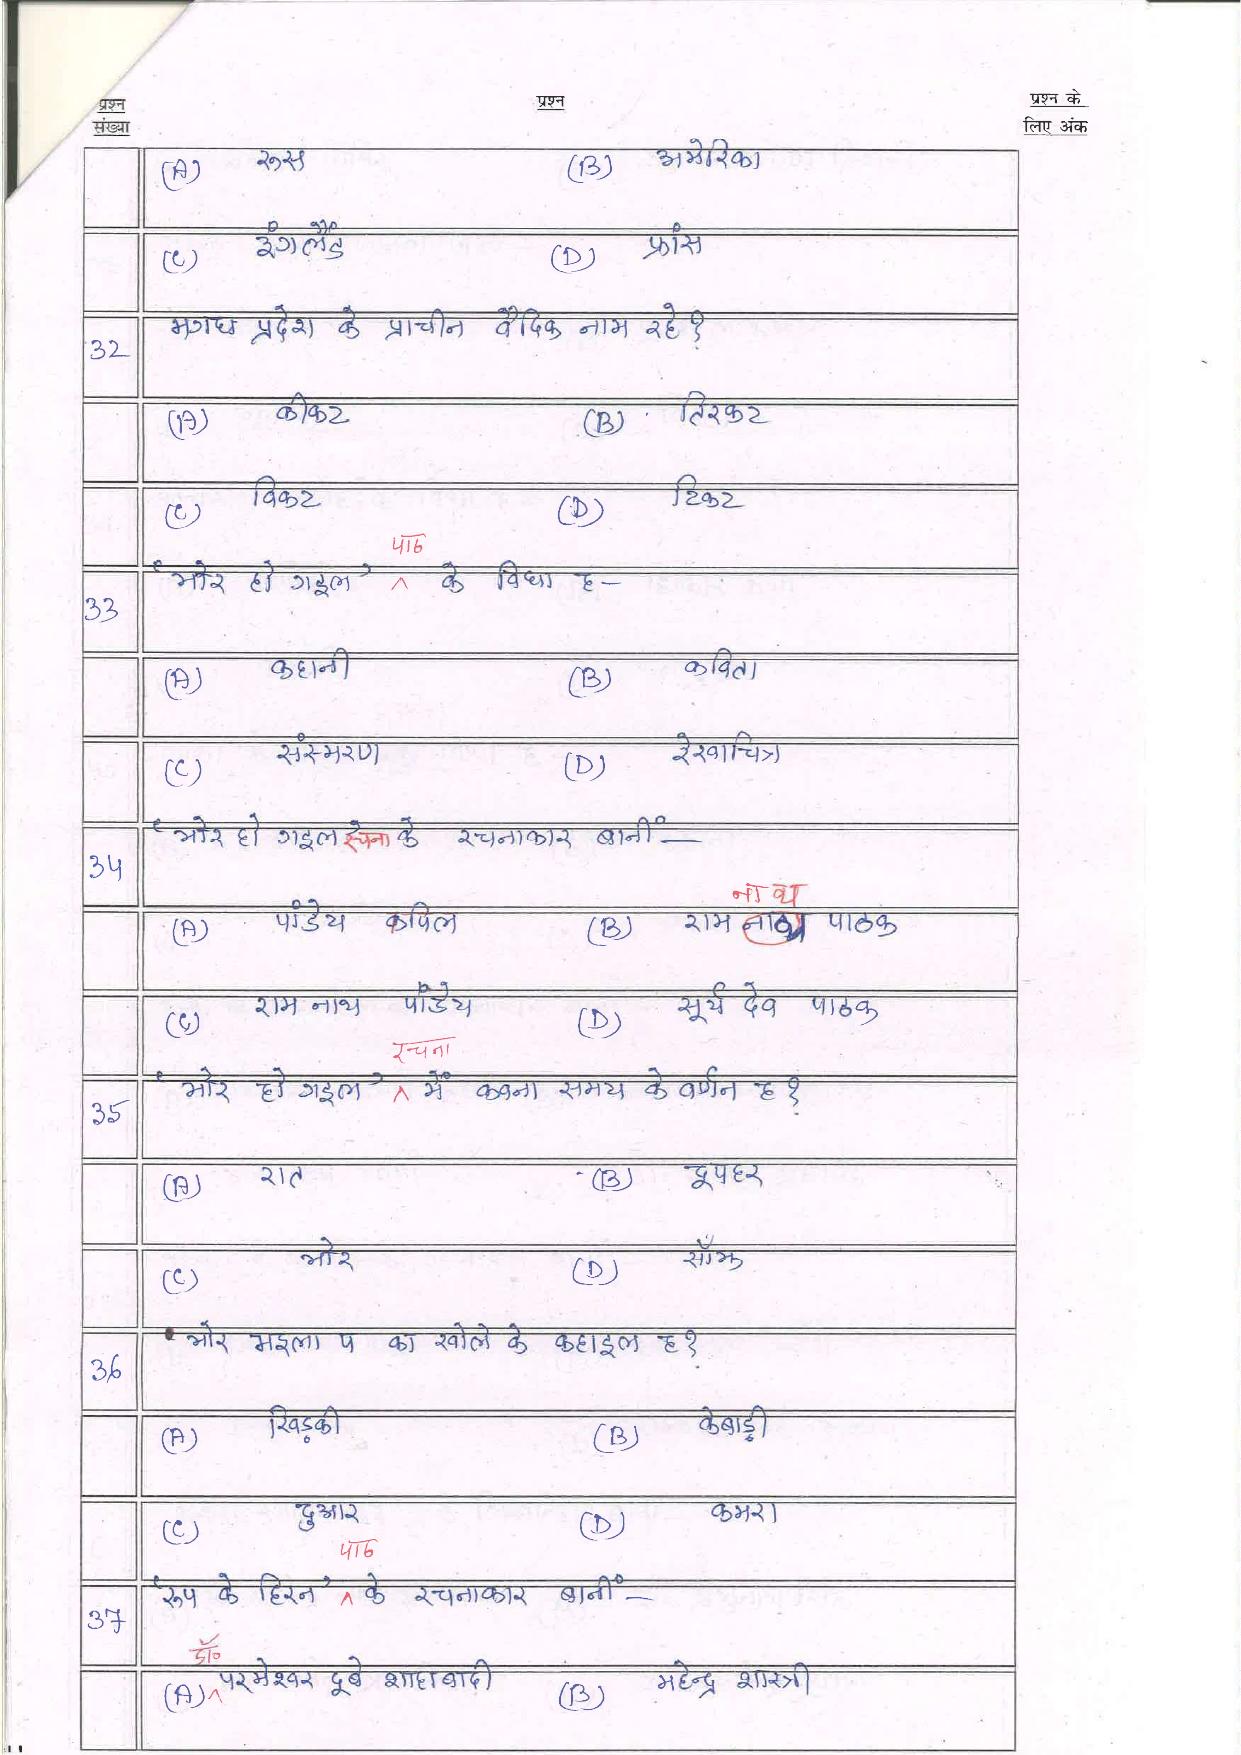 प्रश्न संख्या प्रश्न प्रश्न के लिए अंक
(A) रूस (B) अमेरिका
(C) इंगलैंड (D) फ्रांस
32 मगध प्रदेश के प्राचीन वैदिक नाम रहे?
(A) कीकट (B) तिरकट
(C) विकट (D) टिकट
पाठ
33 'भोर हो गइल' ^ के विधा ह-
(A) कहानी (B) कविता
(C) संस्मरण (D) रेखाचित्र
34 'भोर हो गइल रचना के रचनाकार बानीं-
नाथ
(A) पांडेय कपिल (B) राम नाथ पाठक
(C) राम नाथ पांडेय (D) सूर्य देव पाठक
रचना
35 'भोर हो गइल' ^ में कवना समय के वर्णन ह?
(A) रात (B) दूपहर
(C) भोर (D) साँझ
36 भोर भइला प का खोले के कहाइल ह?
(A) खिड़की (B) केबाड़ी
(C) दुआर (D) कमरा
पाठ
37 'रूप के हिरन' ^ के रचनाकार बानीं-
डॉ०
(A) ^ परमेश्वर दूबे शाहाबादी (B) महेन्द्र शास्त्री